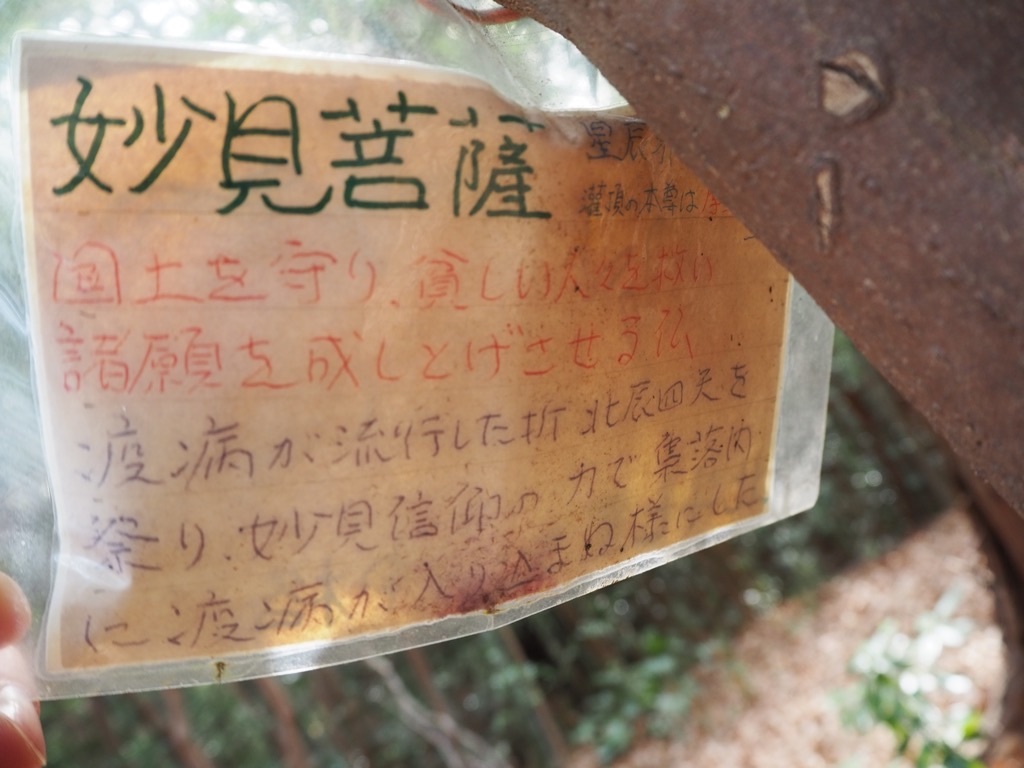 妙見菩薩
星辰
灌頂の本尊は
国土を守り、貧しい人々を救い
諸願を成しとげさせる仏
疫病が流行した折北辰四天を
祭り、妙見信仰の力で集落内
に疫病が入り込まぬ様にした